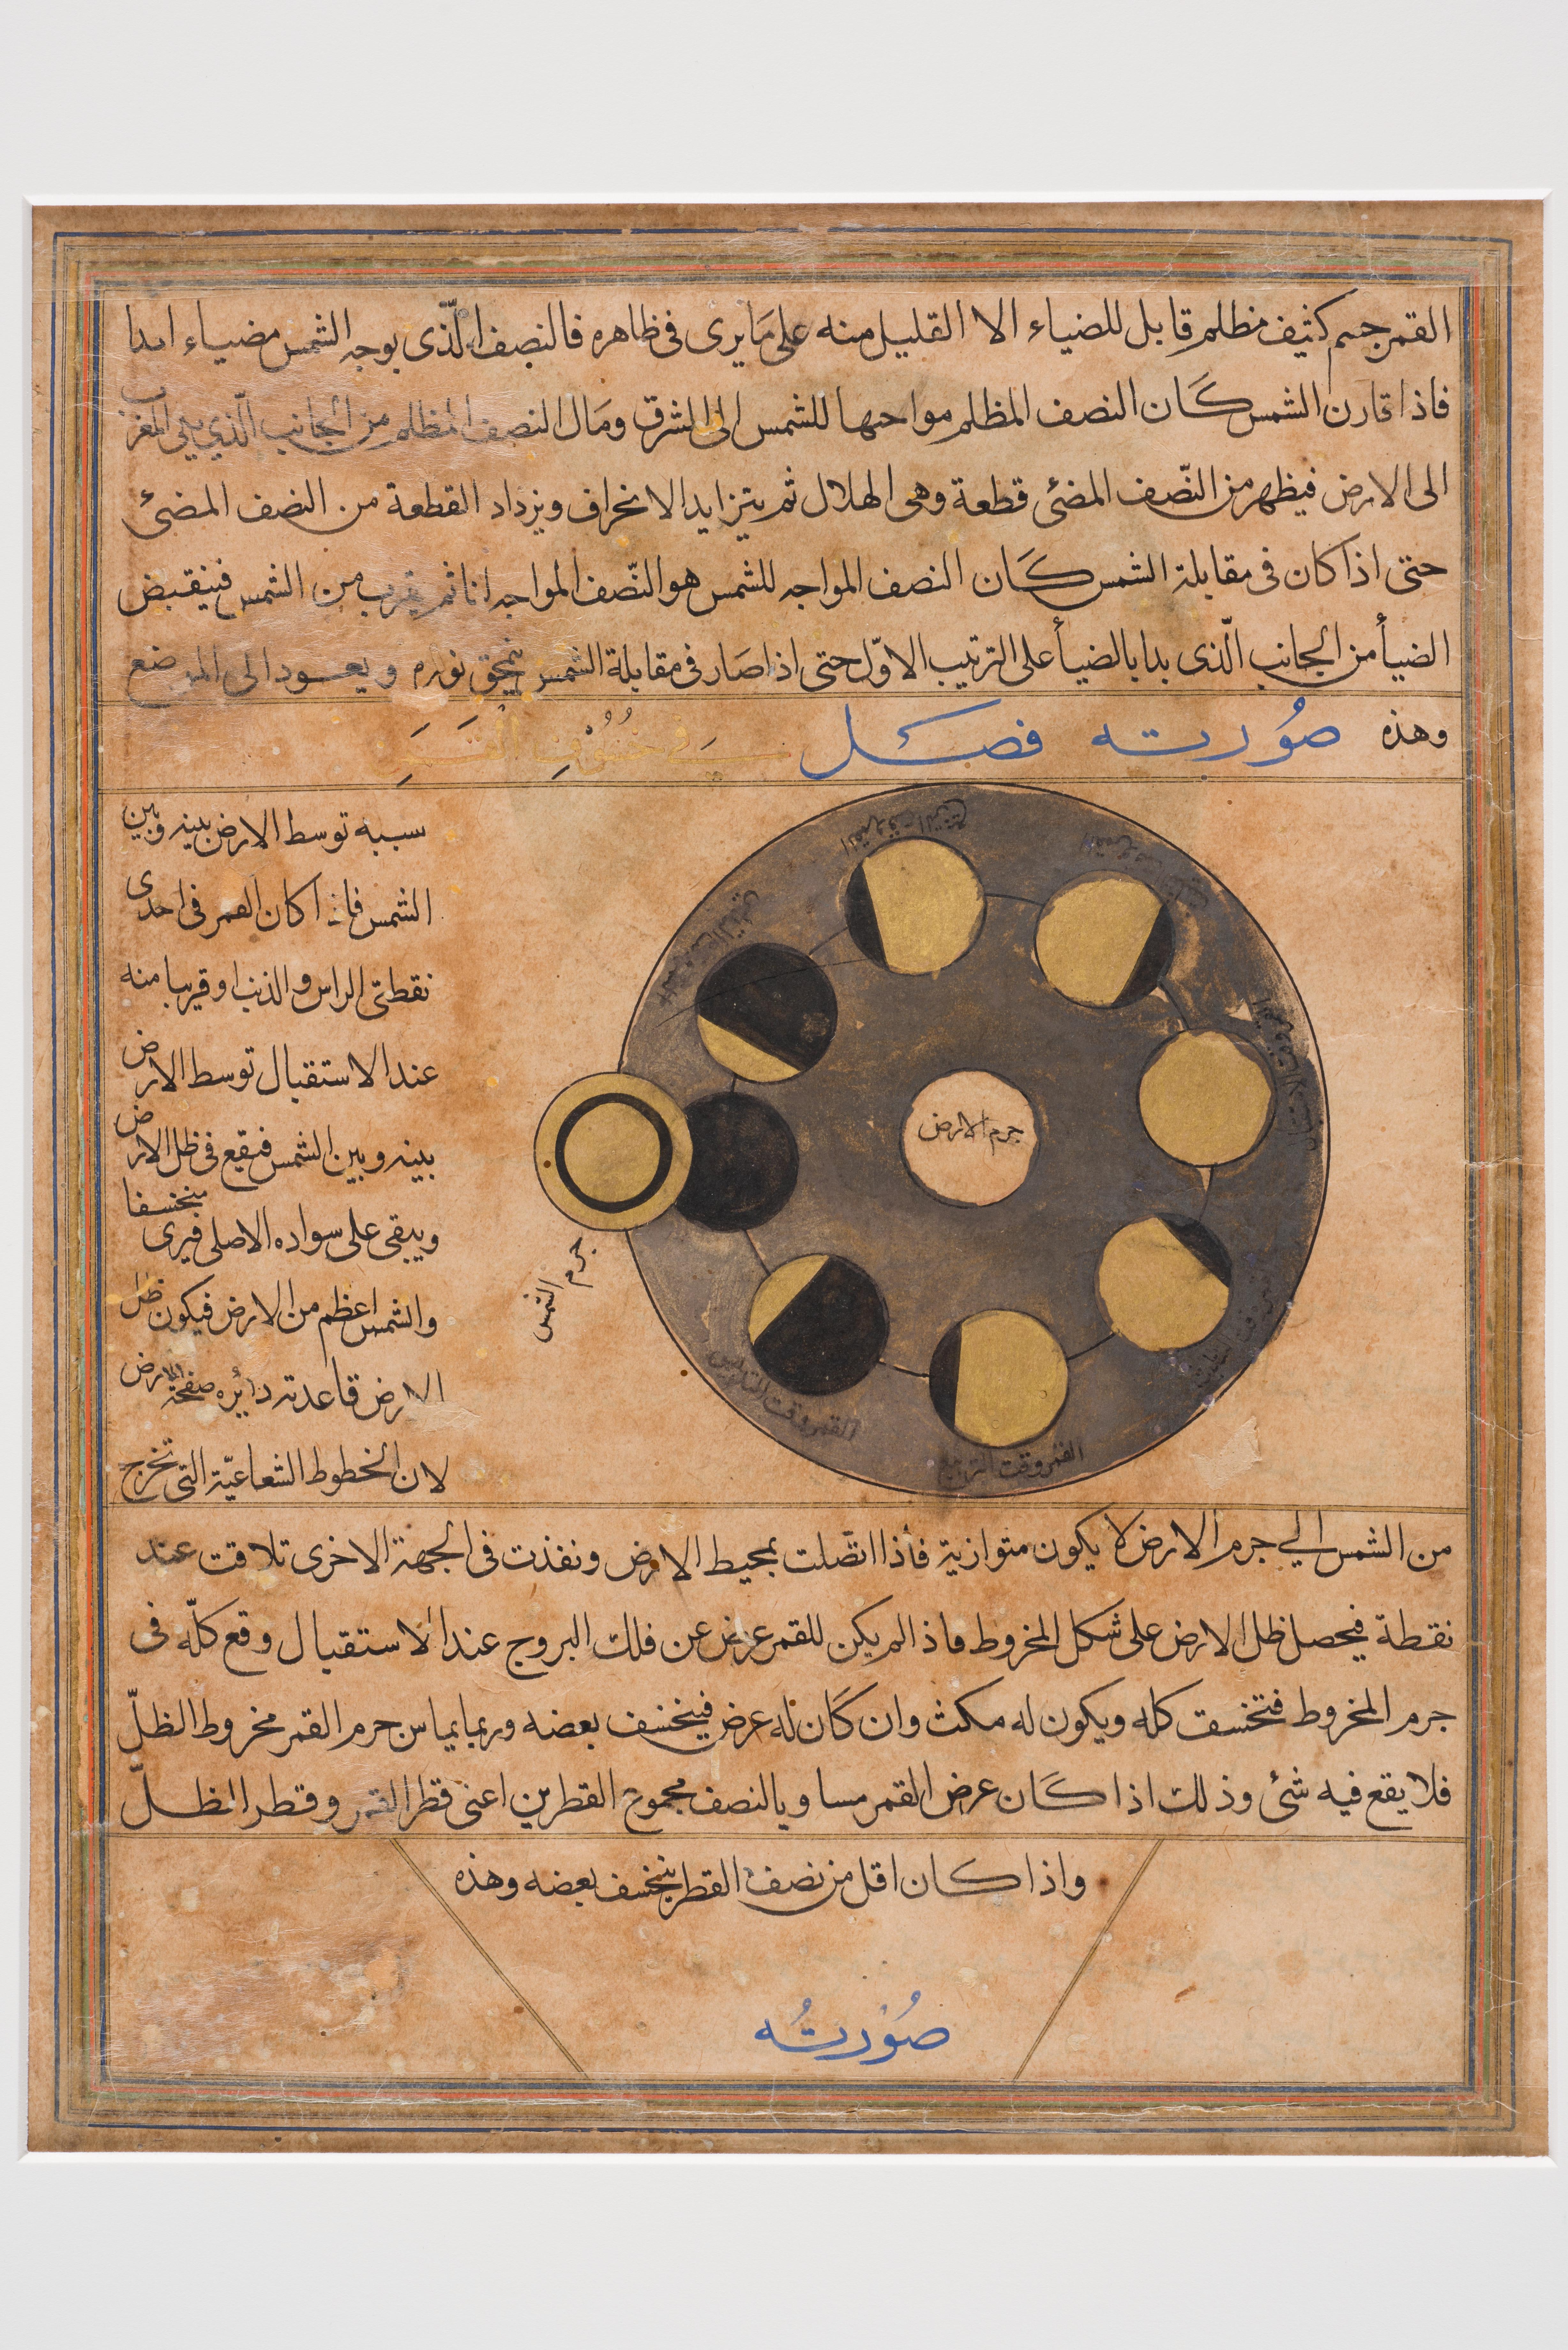 القمر جسم كثيف مظلم قابل للضياء الا القليل منه على مَا يرى فى ظاهره فالنصف الّذى بوجه الشمس مضياء ابدا
فاذا قارن الشمس كَان النصف المظلم مواجها للشمس الى المشرق ومَال النصف المظلم من الجانب الّذي يلي المغرب
الى الارض فيظهر من النّصف المضئ قطعة وهى الهلال ثم يتزايد الانحراف ويزداد القطعة من النصف المضئ
حتى اذا كان فى مقابلة الشمس كَان النصف المواجه للشمس هو النّصف المواجه لنا ثم يقرب من الشمس فينقبض
الضيأ من الجانب الّذى بدا بالضيأ على الترتيب الاوّل حتى اذا صَار فى مقابلة الشمس ينمحق نوره ويعود الى الموضع
وهذه صُورته فصل في خسُوفِ القَمَرِ
سببه توسط الارض بينه وبين
الشمس فاذا كان القمر فى احدى
نقطتى الراس والذنب او قريبا منه
عند الاستقبال توسط الارض
بينه وبين الشمس فيقع فى ظل الارض
ويبقى على سواده الاصلى فيرى منخسفا
والشمس اعظم من الارض فيكون ظل
الارض قاعدته دائره صفحة الارض
لان الخطوط الشعاعيّة التى تخرج
القمر وقت التربيع
جرم الارض
جرم الشمس
القمر وقت التسديس
القمر وقت التربيع
من الشمس الي جرم الارض لا يكون متوازية فأذا اتّصلت بمحيط الارض ونفذت فى الجهة الاخرى تلاقت عند
نقطة فيحصل ظل الارض على شكل المخروط فاذا لم يكن للقمر عرض عن فلك البروج عند الاستقبال وقع كلّه فى
جرم المخروط فتخسف كله ويكون له مكث وان كَان له عرض فينخسف بعضه وربما يماس جرم القمر مخروط الظلّ
فلا يقع فيه شئ وذلك اذا كَان عرض القمر مساويا لنصف مجموع القطرين اعنى قطر القمر وقطر الظلّ
واذا كان اقل من نصف القطر ينخسف بعضه وهذه
صُورتُه